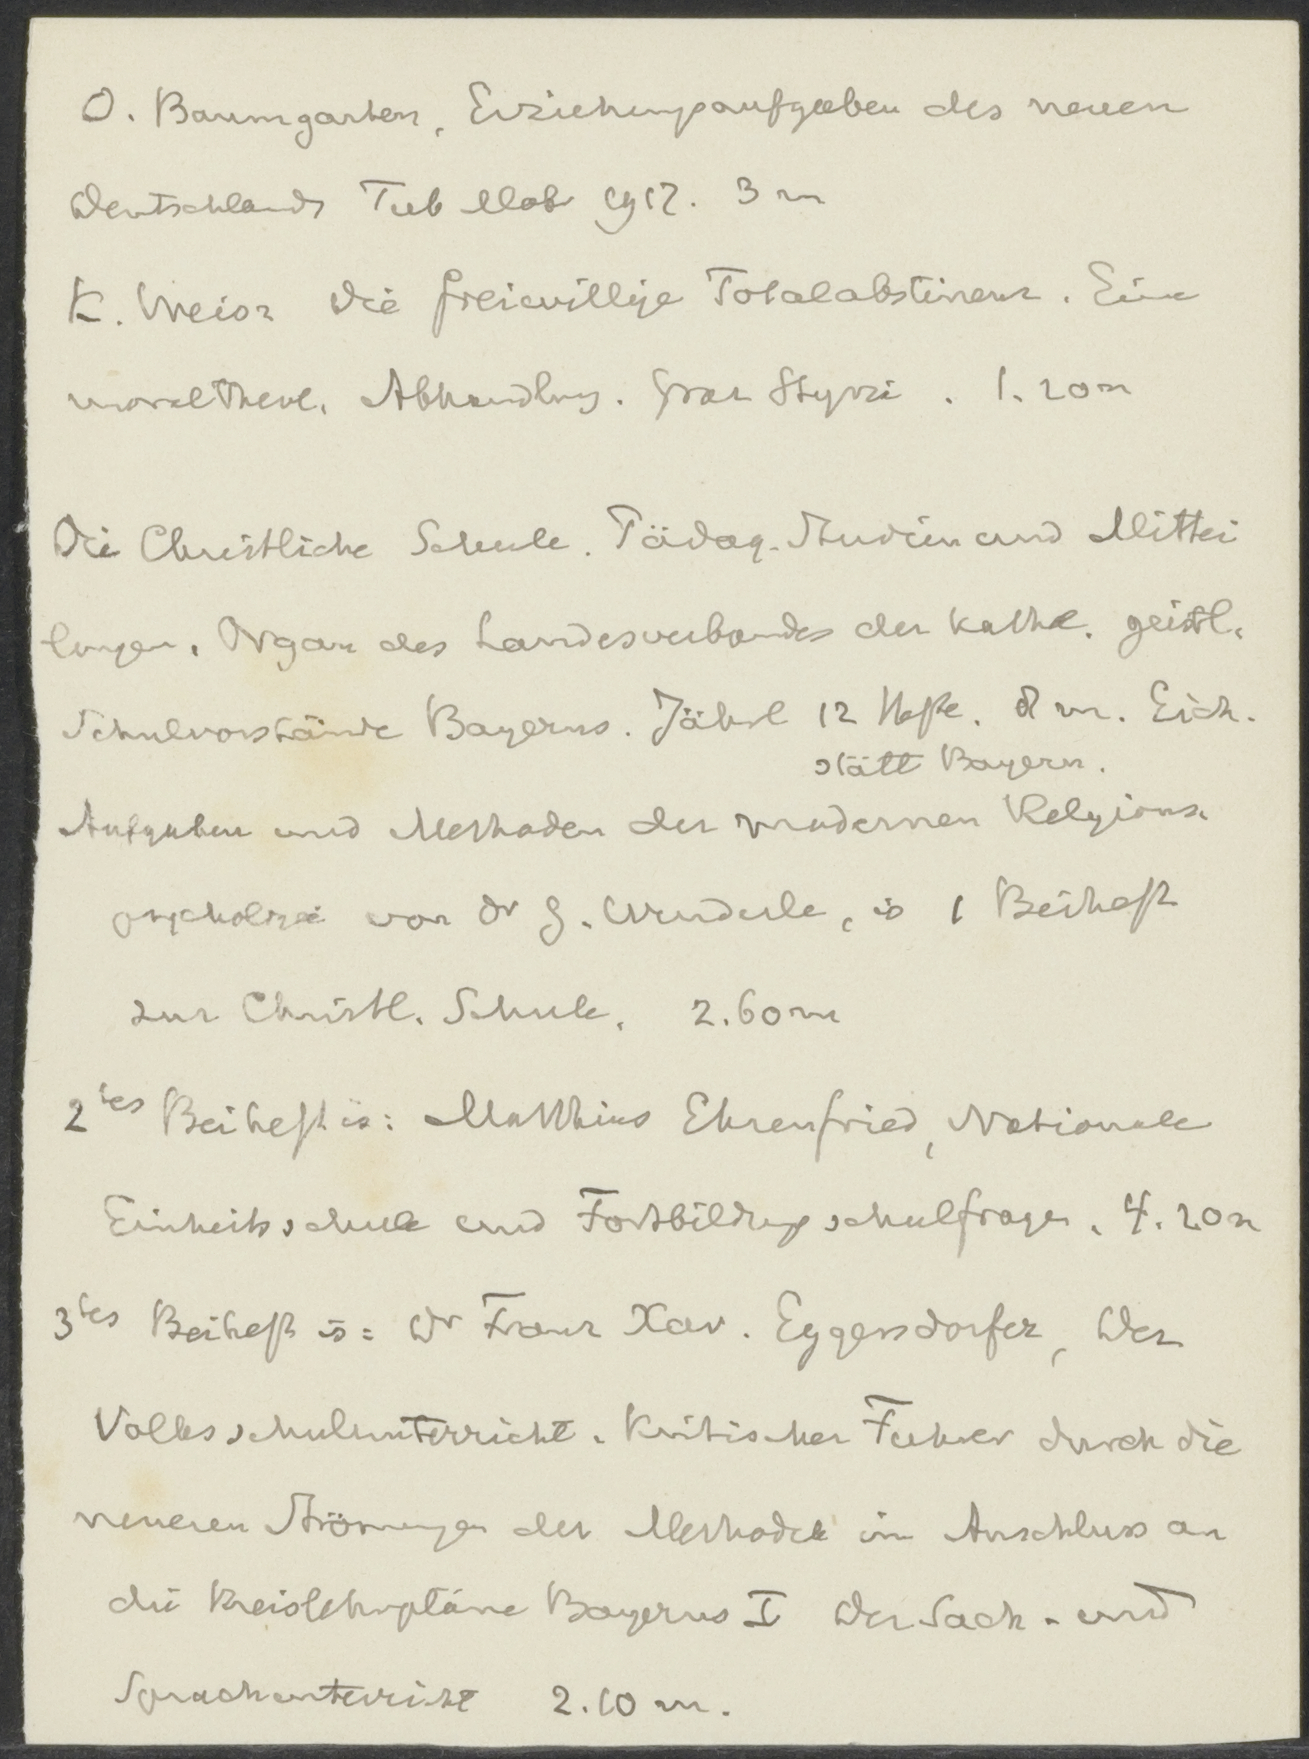 O. Baumgarten, Erziehungsaufgaben des neuen
Deutschlands Tub Mohr 1917. 3 m
K. Weisz Die freiwillige Totalabstinenz. Eine
moraltheol. Abhandlung. Graz Styria. 1.20 m
Die Christliche Schule. Pädag. Studien und Mittei
lungen. Organ des Landesverbandes der kathol. geistl.
Schulvorstände Bayerns. Jährl 12 Hefte. 8 m. Eich.
stätt Bayern.
Aufgaben und Methoden der modernen Religions.
psychologie von Dr G. Wunderle, is 1 Beiheft
zur Christl. Schule. 2.60 m
2tes Beiheft is: Matthias Ehrenfried, Nationale
Einheitsschule und Fortbildungsschulfragen. 4.20 m
3tes Beiheft is: Dr Franz Xav. Eggersdorfer, Der
Volksschulunterricht. Kritischer Fuhrer durch die
neueren Strömungen der Methodik im Anschluss an
die Kreislehrpläne Bayerns I Der Sach- und
Sprachunterricht 2.10 m.